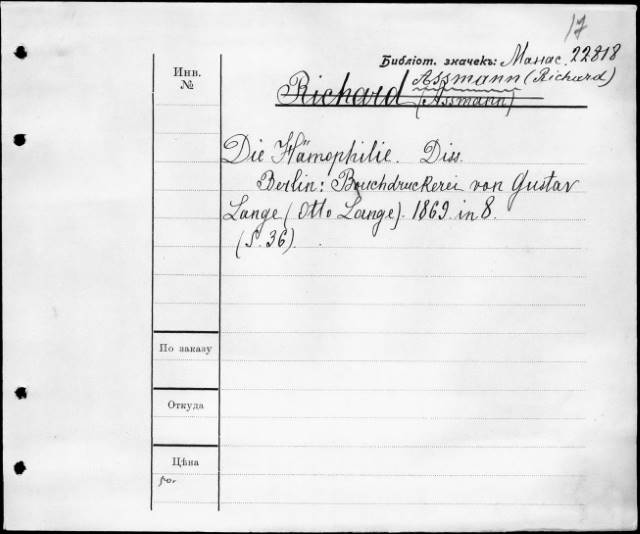 17
Библіот. значекъ: Манас. 22818
Инв.
№
Assmann (Richard)
Richard (Assmann)
Die Hämophilie. Diss.
Berlin: Buchdruckerei von Gustav
Lange (Otto Lange). 1869. in 8.
(S. 36).
По заказу
Откуда
Цѣна